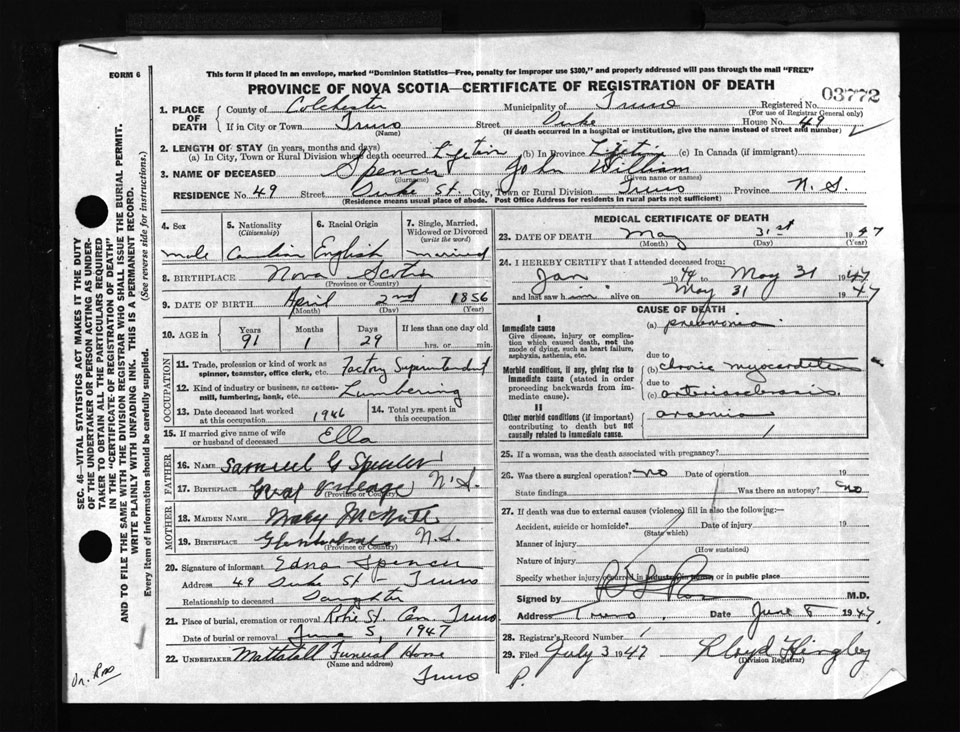 FORM 6
This form if placed in an envelope, marked "Dominion Statistics—Free, penalty for improper use $300," and properly addressed will pass through the mail "FREE"
PROVINCE OF NOVA SCOTIA—CERTIFICATE OF REGISTRATION OF DEATH
03772
1. PLACE OF DEATH County of Colchester Municipality of Truro Registered No.
(For use of Registrar General only)
If in City or Town Truro Street Duke House No. 49
(Name) (If death occurred in a hospital or institution, give the name instead of street and number)
2. LENGTH OF STAY (in years, months and days)
(a) In City, Town or Rural Division where death occurred Lifetim (b) In Province Lifetim (c) In Canada (if immigrant)
3. NAME OF DECEASED Spencer John William
(Surname) (Given name or names)
RESIDENCE No. 49 Street Duke St. City, Town or Rural Division Truro Province N. S.
(Residence means usual place of abode. Post Office Address for residents in rural parts not sufficient)
4. Sex 5. Nationality (Citizenship) 6. Racial Origin 7. Single, Married, Widowed or Divorced (write the word)
male Canadian English married
8. BIRTHPLACE Nova Scotia
(Province or Country)
9. DATE OF BIRTH April 2nd 1856
(Month) (Day) (Year)
10. AGE in Years Months Days If less than one day old
91 1 29 hrs. or min.
OCCUPATION
11. Trade, profession or kind of work as spinner, teamster, office clerk, etc. Factory Superintendent
12. Kind of industry or business, as cotton-mill, lumbering, bank, etc. Lumbering
13. Date deceased last worked at this occupation 1946 14. Total yrs. spent in this occupation
15. If married give name of wife or husband of deceased Ella
FATHER
16. NAME Samuel G Spencer
17. BIRTHPLACE Great Village N.S.
(Province or Country)
MOTHER
18. MAIDEN NAME Mary McNutt
19. BIRTHPLACE N.S.
(Province or Country)
20. Signature of informant Edna Spencer
Address 49 Duke St – Truro
Relationship to deceased Daughter
21. Place of burial, cremation or removal Robie St. Cem. Truro
Date of burial or removal June 5, 1947
22. UNDERTAKER Mattatall Funeral Home
(Name and address)
Truro
MEDICAL CERTIFICATE OF DEATH
23. DATE OF DEATH May 31st 1947
(Month) (Day) (Year)
24. I HEREBY CERTIFY that I attended deceased from:
Jan 1947 to May 31 1947
and last saw him alive on May 31 1947
CAUSE OF DEATH
I
Immediate cause (a) pneumonia
Give disease, injury or complication which caused death, not the mode of dying, such as heart failure, asphyxia, asthenia, etc.
due to
Morbid conditions, if any, giving rise to immediate cause (stated in order proceeding backwards from immediate cause). (b) chronic myocarditis
due to
(c) arteriosclerosis
II
Other morbid conditions (if important) contributing to death but not causally related to immediate cause.
25. If a woman, was the death associated with pregnancy?
26. Was there a surgical operation? no Date of operation 19
State findings Was there an autopsy? no
27. If death was due to external causes (violence) fill in also the following:—
Accident, suicide or homicide? Date of injury 19
(State which)
Manner of injury
(How sustained)
Nature of injury
Specify whether injury occurred in industry, in home, or in public place
Signed by M.D.
Address Truro Date June 8 1947.
28. Registrar's Record Number 1
29. Filed July 3 1947 Lloyd Hingley
(Division Registrar)
P.
SEC. 46—VITAL STATISTICS ACT MAKES IT THE DUTY
OF THE UNDERTAKER OR PERSON ACTING AS UNDER-
TAKER TO OBTAIN ALL THE PARTICULARS REQUIRED
IN THE "CERTIFICATE OF REGISTRATION OF DEATH"
AND TO FILE THE SAME WITH THE DIVISION REGISTRAR WHO SHALL ISSUE THE BURIAL PERMIT.
WRITE PLAINLY WITH UNFADING INK. THIS IS A PERMANENT RECORD.
Every item of information should be carefully supplied. (See reverse side for instructions.)
Dr. Ross